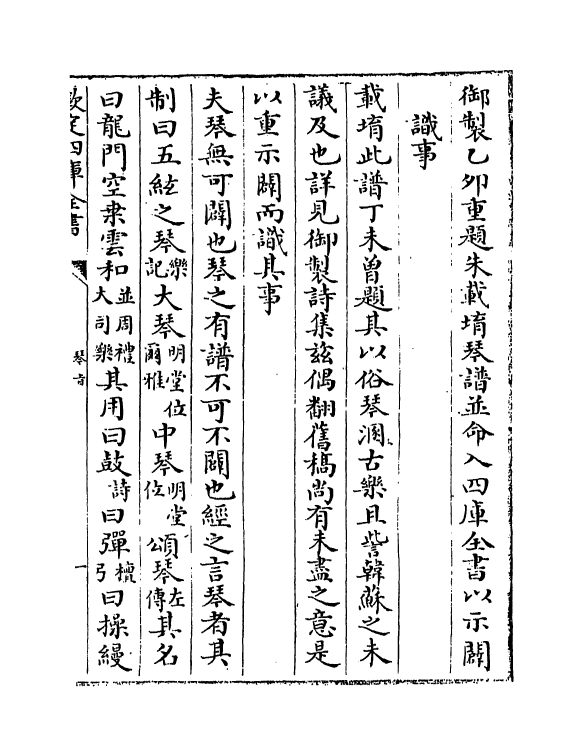 御製乙夘重題朱載堉琴譜並命入四庫全書以示闢
識事
載堉此譜丁未曾題其以俗琴溷古樂且訾韓蘇之未
議及也詳見御製詩集兹偶翻舊稿尚有未盡之意是
以重示闢而識其事
夫琴無可闢也琴之有譜不可不闢也經之言琴者其
制曰五絃之琴樂記大琴明堂位爾雅中琴明堂位頌琴左傳其名
曰龍門空桑雲和並周禮大司樂其用曰鼓詩曰彈檀弓曰操縵
欽定四庫全書
琴旨
一